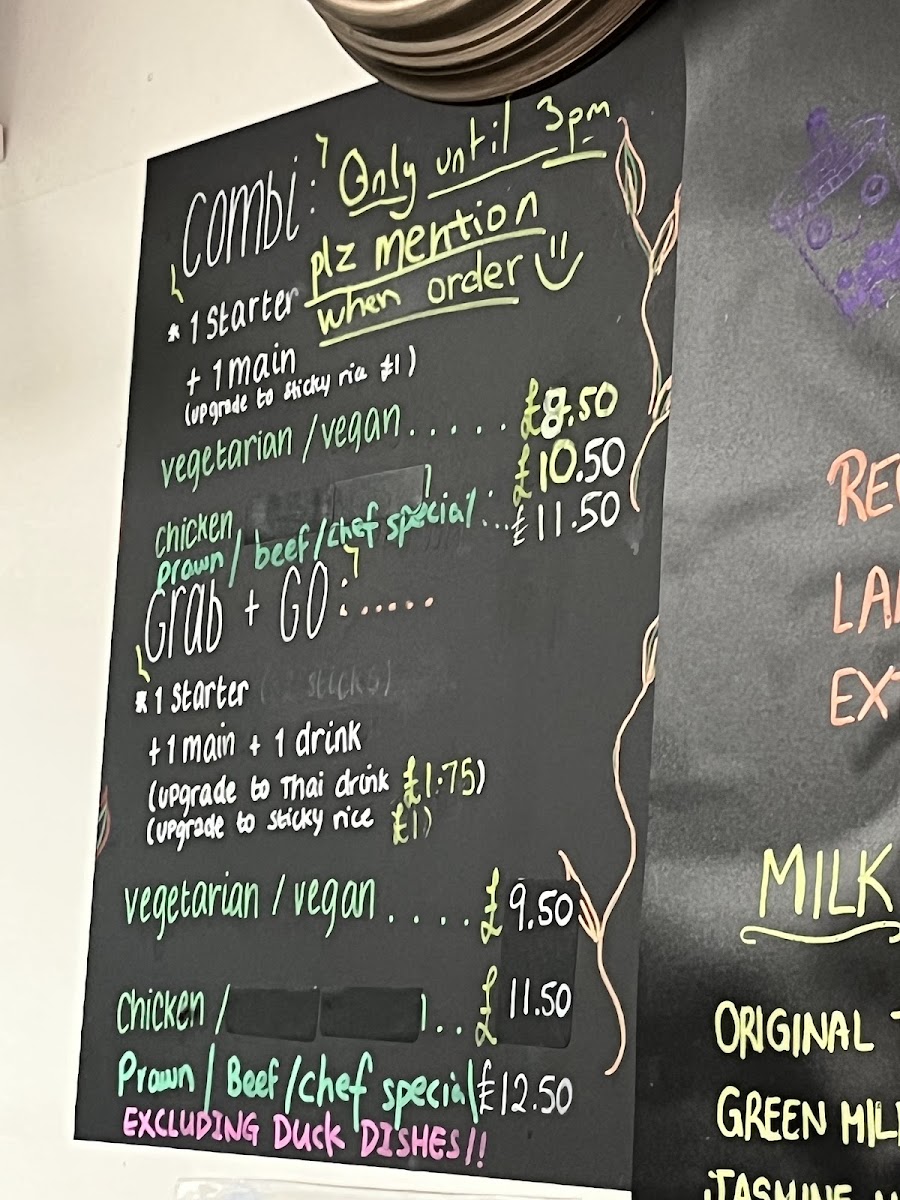 Combi: Only until 3pm
plz mention
when order
* 1 starter
+ 1 main
(upgrade to sticky rice £1)
vegetarian/vegan..... £8.50
chicken £10.50
Prawn/beef/chef special... £11.50
Grab + GO:.....
* 1 starter
+ 1 main + 1 drink
(upgrade to Thai drink £1.75)
(upgrade to sticky rice £1)
vegetarian/vegan.... £9.50
Chicken/ .. £11.50
Prawn/Beef/chef special £12.50
EXCLUDING Duck DISHES!!
MILK
ORIGINAL
GREEN
JASMINE